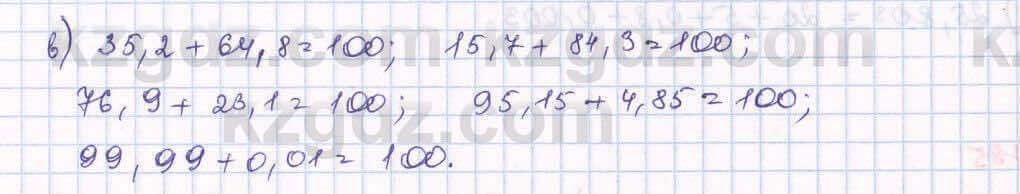 в) 35,2 + 64,8 = 100; 15,7 + 84,3 = 100;
76,9 + 23,1 = 100; 95,15 + 4,85 = 100;
99,99 + 0,01 = 100.
kzgdz.com
kzgdz.com